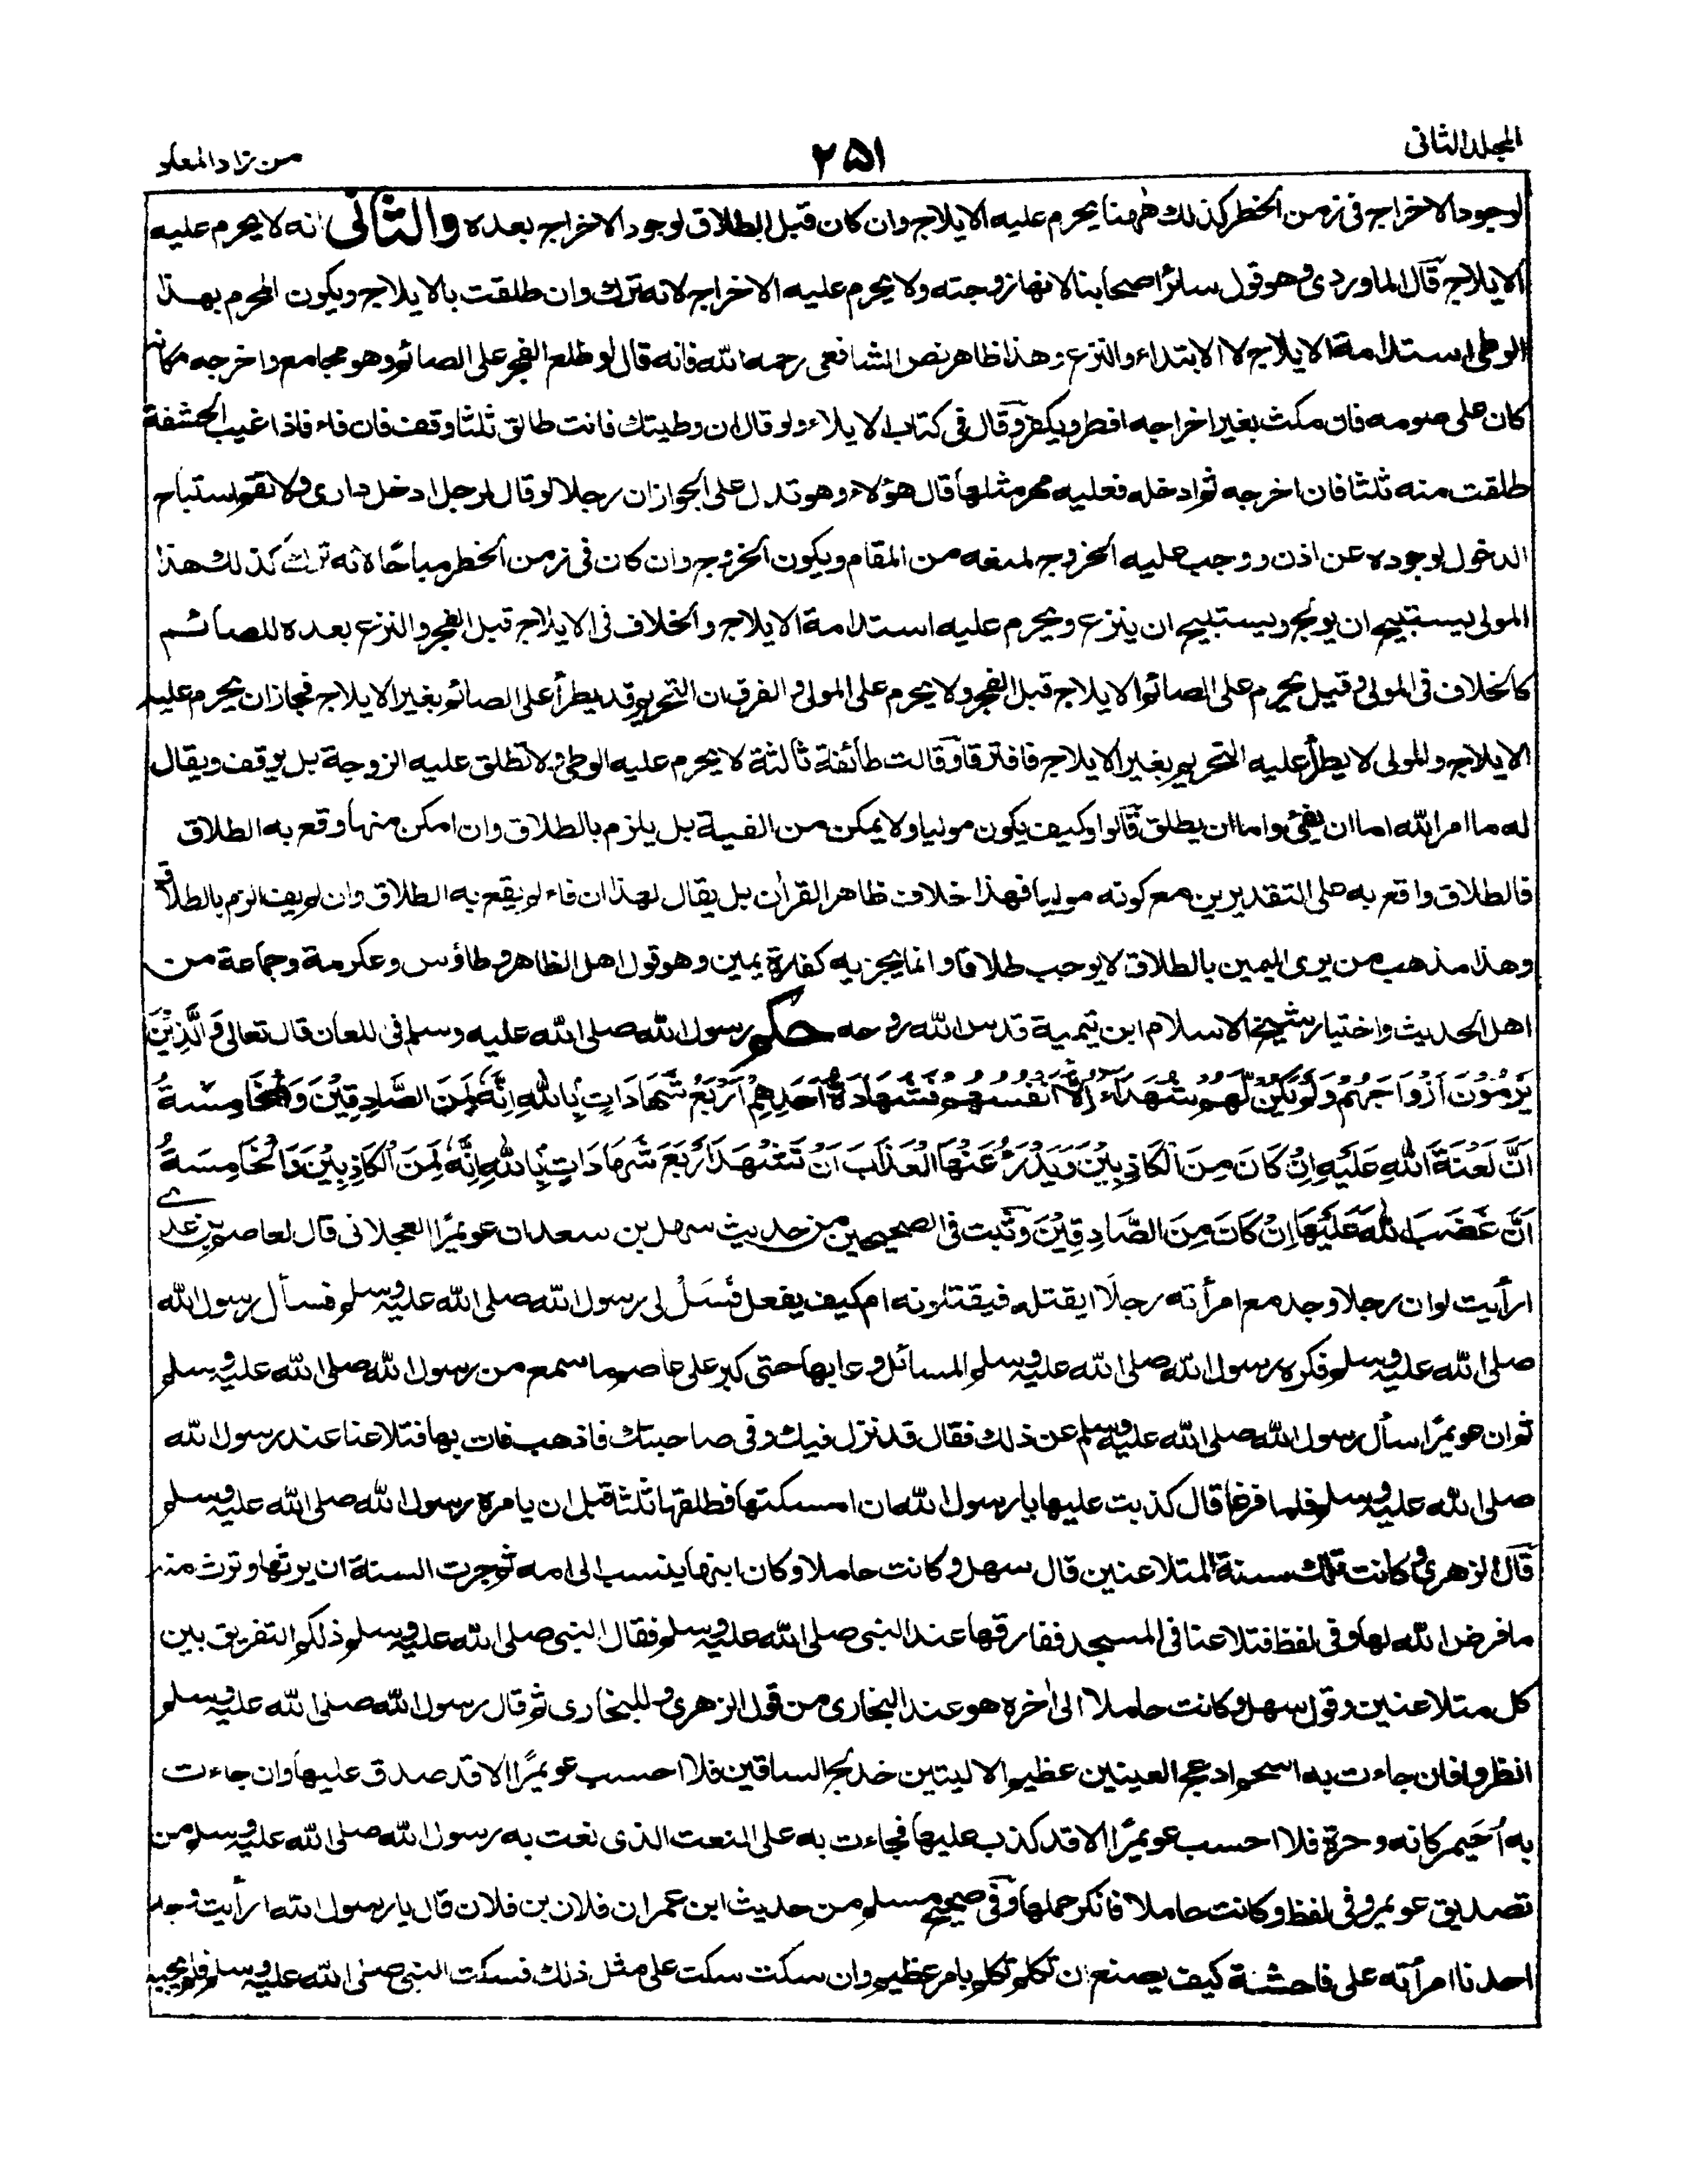 المجلد الثانى
٢٥١
من زاد المعاد
لوجود الاخراج فى زمن الخطر كذلك ههنا يحرم عليه الايلاج وان كان قبل الطلاق لوجود الاخراج بعده والثانى انه لا يحرم عليه
الايلاج قال الماوردى وهو قول سائر اصحابنا لانها زوجته ولا يحرم عليه الاخراج لانه ترك وان طلقت بالايلاج ويكون المحرم بهذا
الوطى استدامة الايلاج لا الابتداء والنزع وهذا ظاهر نص الشافعى رحمه الله فانه قال لو طلع الفجر على الصائم وهو مجامع واخرجه مكانه
كان على صومه فان مكث بغير اخراجه افطر ويكفر وقال فى كتاب الايلاء ولو قال ان وطيتك فانت طالق ثلثا وقف فان فاء فاذا غيب الحشفة
طلقت منه ثلثا فان اخرجه ثم ادخله فعليه مهر مثلها قال هؤلاء وهو تدل على الجواز ان رجلا لو قال لرجل ادخل دارى ولا تقم استباح
الدخول لوجوده عن اذن ووجب عليه الخروج لمنعه من المقام ويكون الخروج وان كان فى زمن الخطر مباحا لانه ترك كذلك هذا
المولى يستبيح ان يولج ويستبيح ان ينزع ويحرم عليه استدامة الايلاج والخلاف فى الايلاج قبل الفجر والنزع بعده للصائم
كالخلاف فى المولى وقيل يحرم على الصائم الايلاج قبل الفجر ولا يحرم على المولى والفرق ان التحريم قد يطرأ على الصائم بغير الايلاج فجاز ان يحرم عليه
الايلاج والمولى لا يطرأ عليه التحريم بغير الايلاج فافترقا وقالت طائفة ثالثة لا يحرم عليه الوطى ولا تطلق عليه الزوجة بل يوقف ويقال
له ما امر الله اما ان يفئ واما ان يطلق قالوا وكيف يكون موليا ولا يمكن من الفيئة بل يلزم بالطلاق وان امكن منها وقع به الطلاق
فالطلاق واقع به على التقديرين مع كونه موليا فهذا خلاف ظاهر القرآن بل يقال لهذا ان فاء لم يقع به الطلاق وان لم يفئ الزم بالطلاق
وهذا مذهب من يرى اليمين بالطلاق لا يوجب طلاقا وانما يجزيه كفارة يمين وهو قول اهل الظاهر وطاؤس وعكرمة وجماعة من
اهل الحديث واختيار شيخ الاسلام ابن تيمية قدس الله روحه حكم رسول الله صلى الله عليه وسلم فى اللعان قال تعالى وَالَّذِيْنَ
يَرْمُوْنَ اَزْوَاجَهُمْ وَلَمْ يَكُنْ لَّهُمْ شُهَدَاءُ اِلَّا اَنْفُسُهُمْ فَشَهَادَةُ اَحَدِهِمْ اَرْبَعُ شَهَادَاتٍ بِاللهِ اِنَّهٗ لَمِنَ الصَّادِقِيْنَ وَالْخَامِسَةُ
اَنَّ لَعْنَةَ اللهِ عَلَيْهِ اِنْ كَانَ مِنَ الْكَاذِبِيْنَ وَيَدْرَؤُ عَنْهَا الْعَذَابَ اَنْ تَشْهَدَ اَرْبَعَ شَهَادَاتٍ بِاللهِ اِنَّهٗ لَمِنَ الْكَاذِبِيْنَ وَالْخَامِسَةُ
اَنَّ غَضَبَ اللهِ عَلَيْهَا اِنْ كَانَ مِنَ الصَّادِقِيْنَ وثبت فى الصحيحين من حديث سهل بن سعد ان عويمرا العجلانى قال لعاصم بن عدى
ارأيت لو ان رجلا وجد مع امرأته رجلا ايقتله فيقتلونه ام كيف يفعل فسل لى رسول الله صلى الله عليه وسلم فسأل رسول الله
صلى الله عليه وسلم فكره رسول الله صلى الله عليه وسلم المسائل وعابها حتى كبر على عاصم ما سمع من رسول الله صلى الله عليه وسلم
ثم ان عويمرا سأل رسول الله صلى الله عليه وسلم عن ذلك فقال قد نزل فيك وفى صاحبتك فاذهب فات بها فتلاعنا عند رسول الله
صلى الله عليه وسلم فلما فرغا قال كذبت عليها يا رسول الله ان امسكتها فطلقها ثلثا قبل ان يامره رسول الله صلى الله عليه وسلم
قال الزهرى وكانت تلك سنة المتلاعنين قال سهل وكانت حاملا وكان ابنها ينسب الى امه ثم جرت السنة ان يرثها وترث منه
ما فرض الله لها وفى لفظ فتلاعنا فى المسجد ففارقها عند النبى صلى الله عليه وسلم فقال النبى صلى الله عليه وسلم ذلكم التفريق بين
كل متلاعنين وقول سهل وكانت حاملا الى اخره هو عند البخارى من قول الزهرى وللبخارى ثم قال رسول الله صلى الله عليه وسلم
انظروا فان جاءت به اسحم ادعج العينين عظيم الاليتين خدلج الساقين فلا احسب عويمرا الا قد صدق عليها وان جاءت
به اُحَيمر كانه وحرة فلا احسب عويمرا الا قد كذب عليها فجاءت به على النعت الذى نعت به رسول الله صلى الله عليه وسلم من
تصديق عويمر وفى لفظ وكانت حاملا فانكر حملها وفى صحيح مسلم من حديث ابن عمر ان فلان بن فلان قال يا رسول الله ارأيت لو وجد
احدنا امرأته على فاحشة كيف يصنع ان تكلم تكلم بامر عظيم وان سكت سكت على مثل ذلك فسكت النبى صلى الله عليه وسلم فلم يجبه